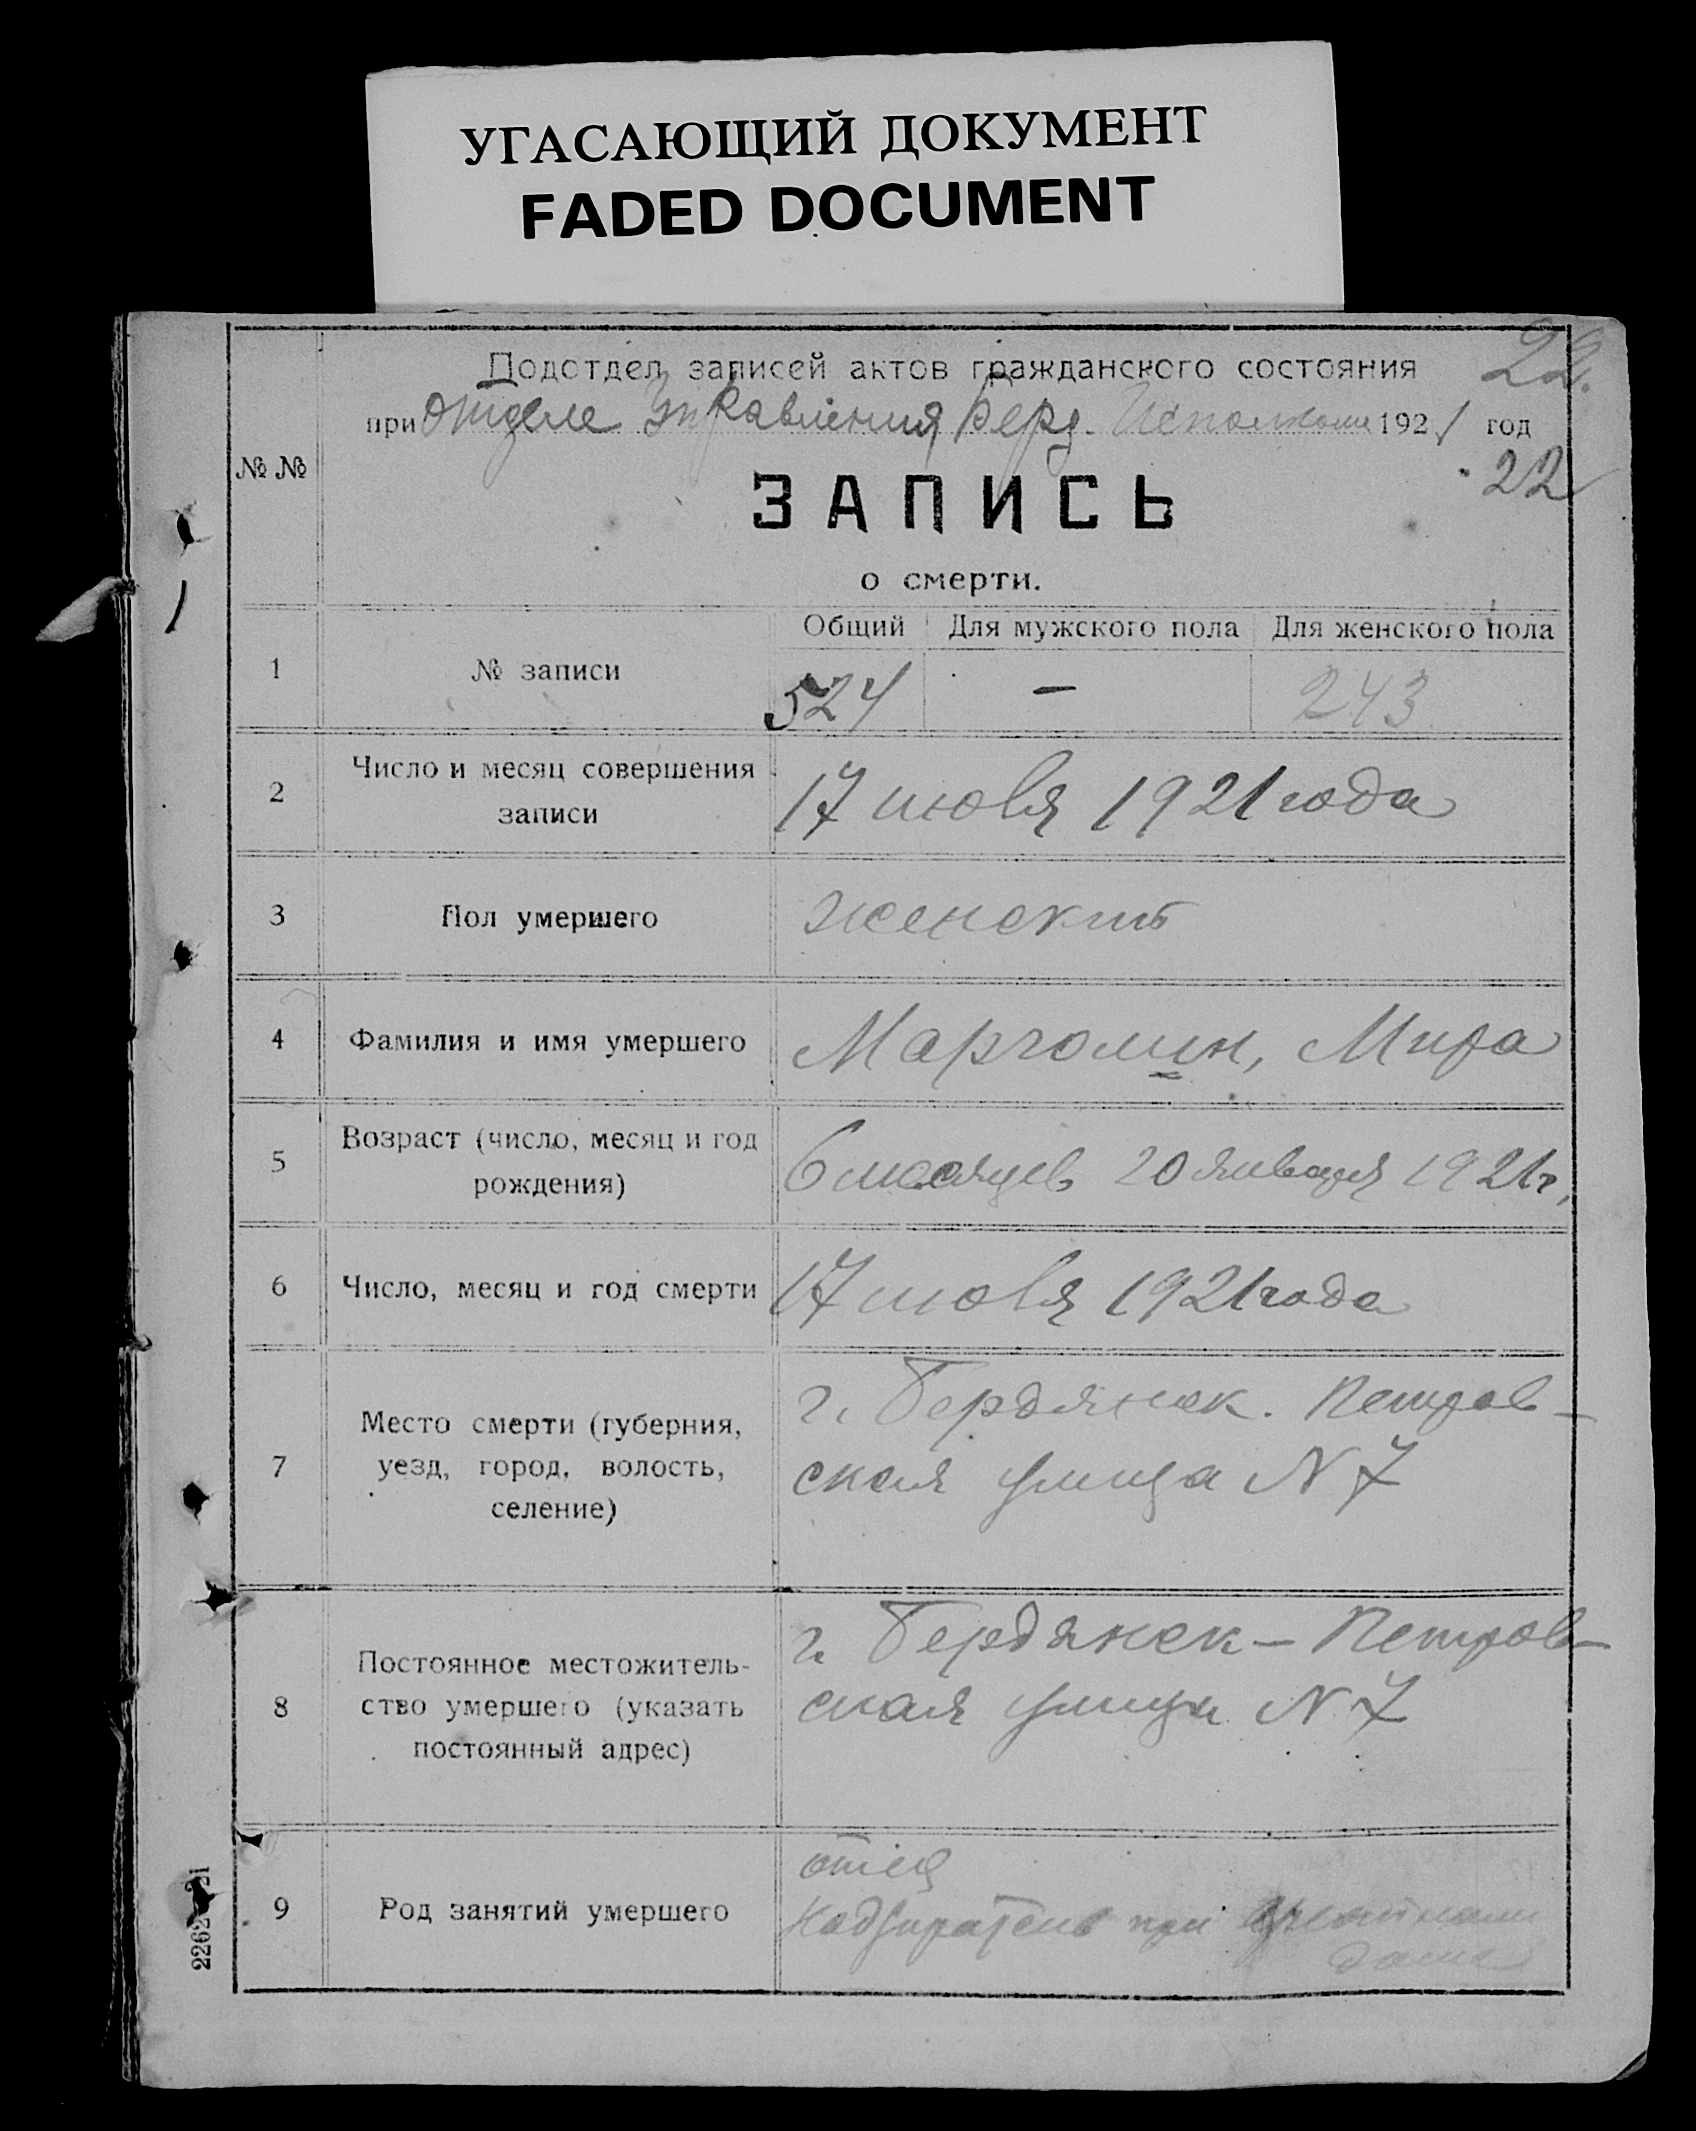 УГАСАЮЩИЙ ДОКУМЕНТ
FADED DOCUMENT
22.
Подотдел записей актов гражданского состояния
при отделе Управления Берд. Исполкома 1921 год
22
№ №
ЗАПИСЬ
о смерти.
Общий Для мужского пола Для женского пола
1 № записи 524 – 243
2 Число и месяц совершения
записи
17 июля 1921 года
3 Пол умершего женский
4 Фамилия и имя умершего Марголин, Мира
5 Возраст (число, месяц и год
рождения)
6 месяцев 20 января 1921 г.
6 Число, месяц и год смерти 17 июля 1921 года
7 Место смерти (губерния,
уезд, город, волость,
селение)
г. Бердянск. Петров-
ская улица N 7
8 Постоянное местожитель-
ство умершего (указать
постоянный адрес)
г. Бердянск – Петров-
ская улица N 7
9 Род занятий умершего
отец
при
доме
2262 21